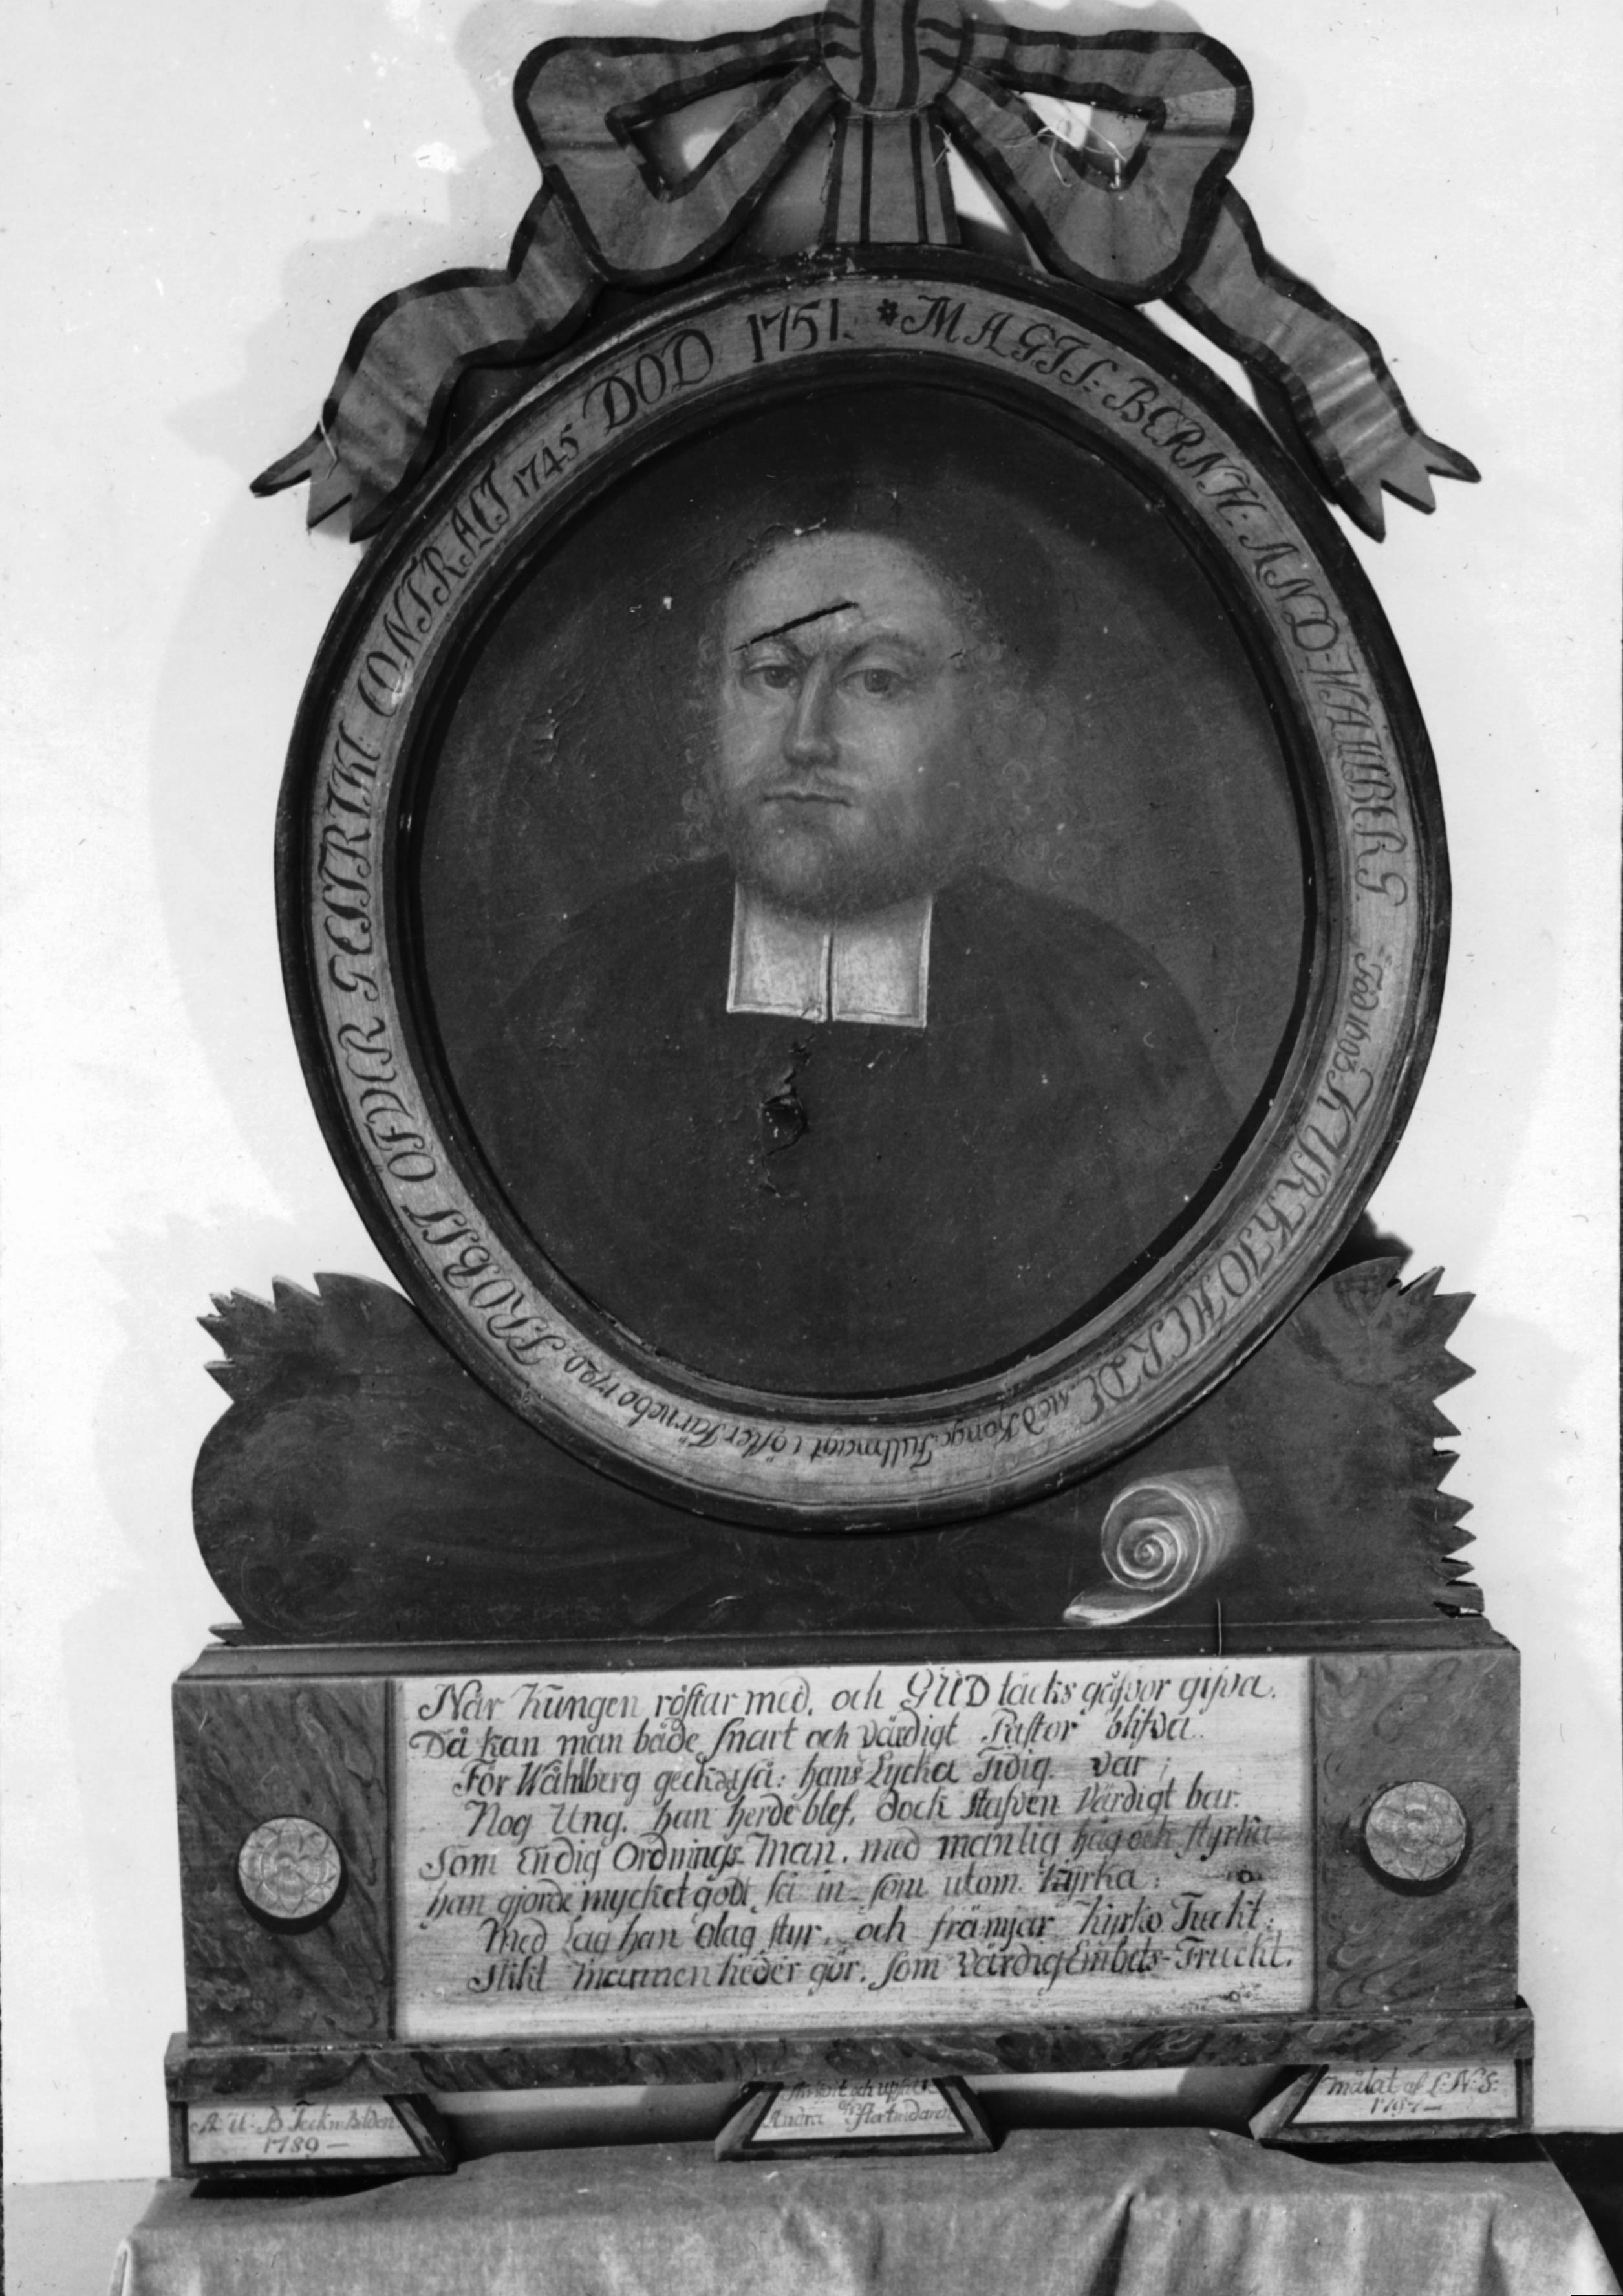 MAGIS: BERNH: AND-WAHLBERG Föd 1693 KYRKIOHERDE, med Kongs Fullmagt i öster Färnebo 1720. PROBST ÖFVER GESTRIKL CONTRACT 1745 DÖD 1751.
När Kungen röstar med, och GUD täcks gåfvor gifva.
Då kan man både snart och värdigt Pastor blifva.
För Wåhlberg gick så: hans Lycka Tidig var;
Nog Ung. han herde blef, dock stafven värdigt bar.
Som Ordnings-Man. med manlig håg och styrka
han gjorde mycket godt så in- som utom Kyrka:
Med Lag han Olag styr, och främjar Kyrko Tuckt:
Slikt mannen heder gör, som värdig Embets-Fruckt.
A: U: B
1789 —
och
Andra
målat af L: N: S: